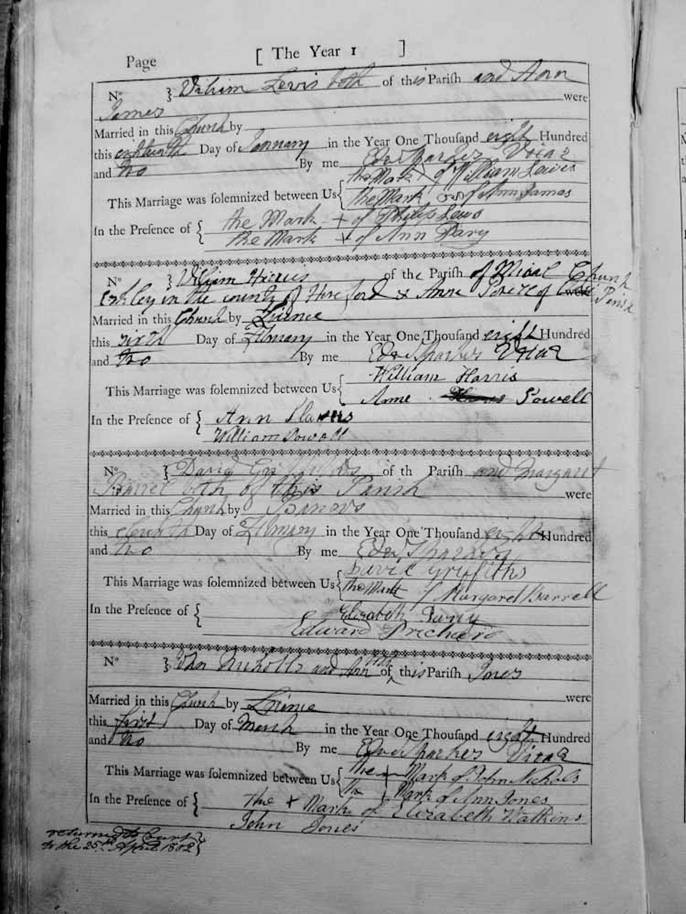 Page [ The Year 1 ]
No } William Lewis both of this Parish and Ann
James were
Married in this Church by
this eighteenth Day of January in the Year One Thousand eight Hundred
and two By me Edw Sparkes Vicar
This Marriage was solemnized between Us { the Mark of William Lewis
the Mark of Ann James
In the Presence of { the Mark + of Philip Lewis
the Mark + of Ann Davy
No } William Harris of the Parish of Church
in the county of Hereford & Anne of Parish were
Married in this Church by License
this Day of in the Year One Thousand eight Hundred
and two By me Edw Sparkes Vicar
This Marriage was solemnized between Us { William Harris
Anne Powell
In the Presence of { Ann
William Powell
No } David Griffiths of th Parish and Margaret
both of this Parish were
Married in this Church by Banns
this Day of in the Year One Thousand eight Hundred
and two By me Edw Sparkes
This Marriage was solemnized between Us { David Griffiths
the Mark of Margaret Barrell
In the Presence of { Elizabeth Parry
Edward Prichard
No } John Nicholls and Ann both of this Parish Jones
were
Married in this Church by License
this first Day of March in the Year One Thousand eight Hundred
and two By me Edw Sparkes Vicar
This Marriage was solemnized between Us { The Mark of John Nichols
The Mark of Ann Jones
In the Presence of { The + Mark of Elizabeth Watkins
John Jones
returned to Court
to the 25th April 1802